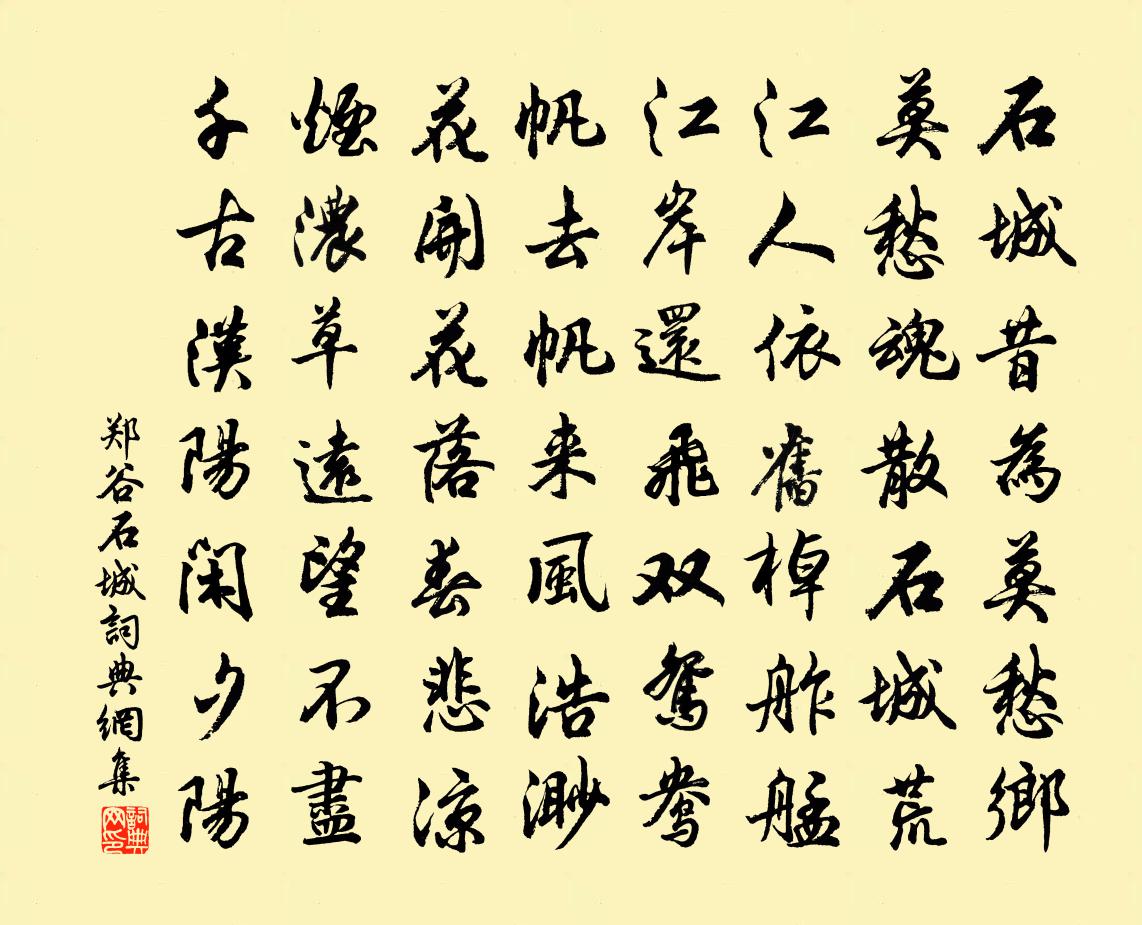 石城昔為莫愁鄉
莫愁魂散石城荒
江人依舊棹舴艋
江岸還飛双鴛鴦
帆去帆来風浩渺
花開花落春悲涼
煙濃草遠望不盡
千古漢陽閑夕陽
郑谷石城詞典網集
詞典網印